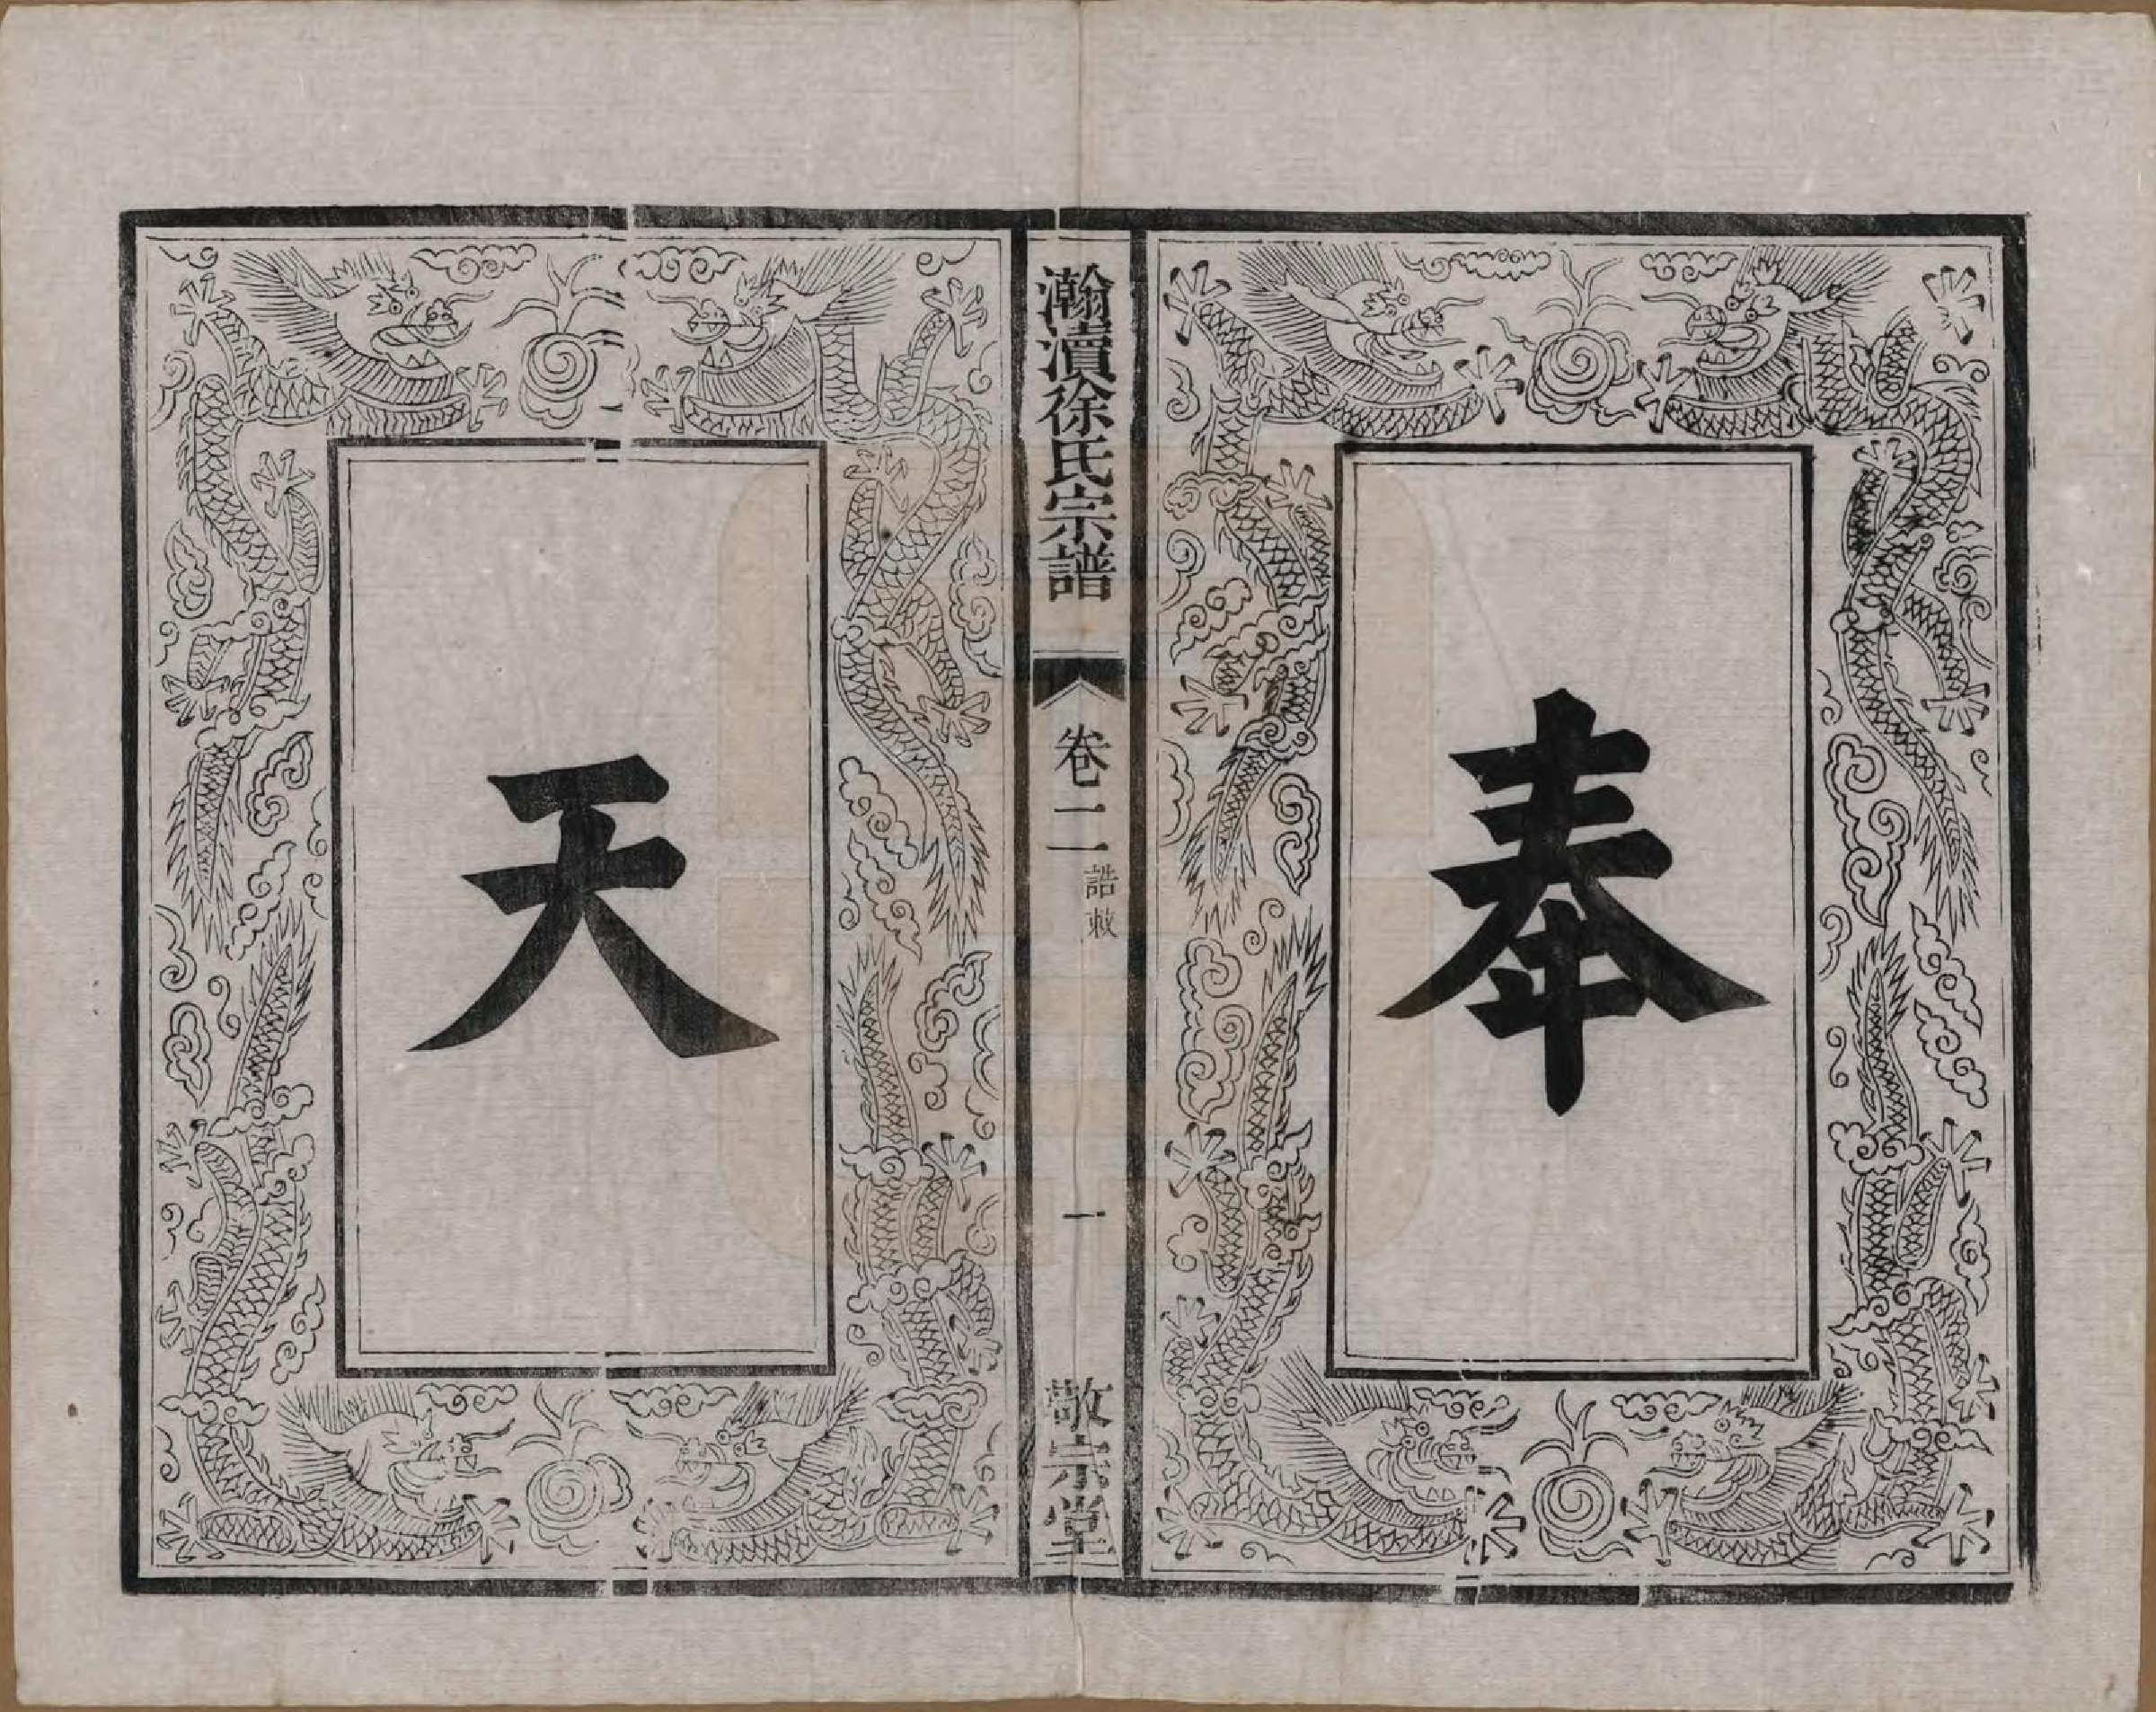 奉
瀚瀆徐氏宗譜
卷二
誥敕
一
敬宗堂
天